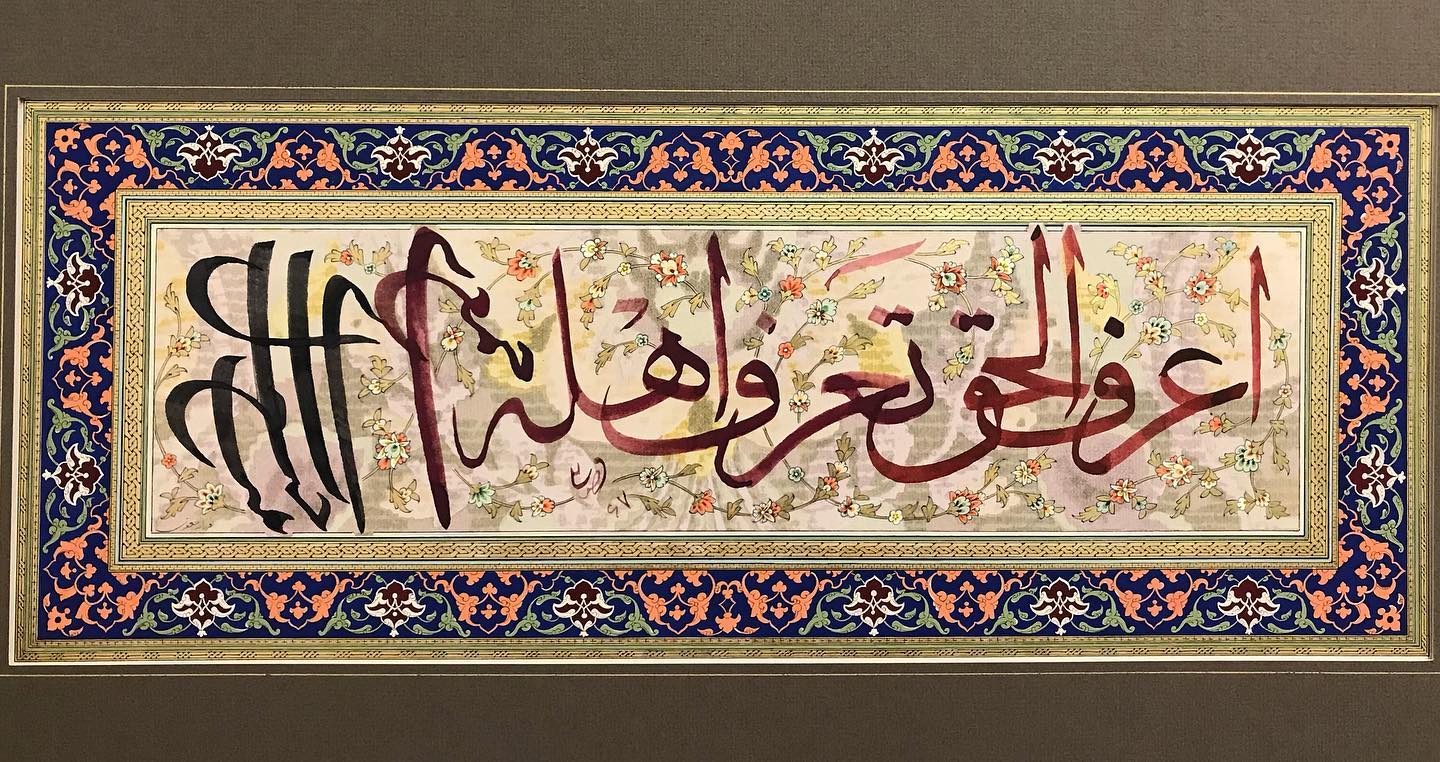 اعرف الحق تعرف اهله